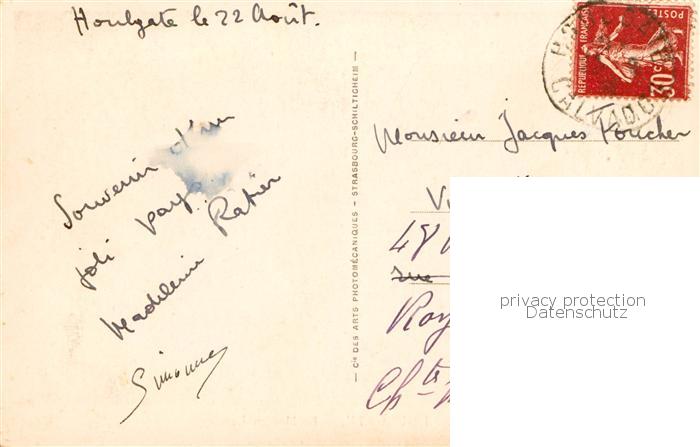 Houlgate le 22 Août.
Souvenir d'un
joli pays.
Madeleine Ratier
Simonne
— Cie DES ARTS PHOTOMÉCANIQUES - STRASBOURG-SCHILTIGHEIM —
POSTES
REPUBLIQUE FRANÇAISE
30c
CALVADOS
Monsieur Jacques Foucher
48
rue
Roy
Chte
privacy protection
Datenschutz